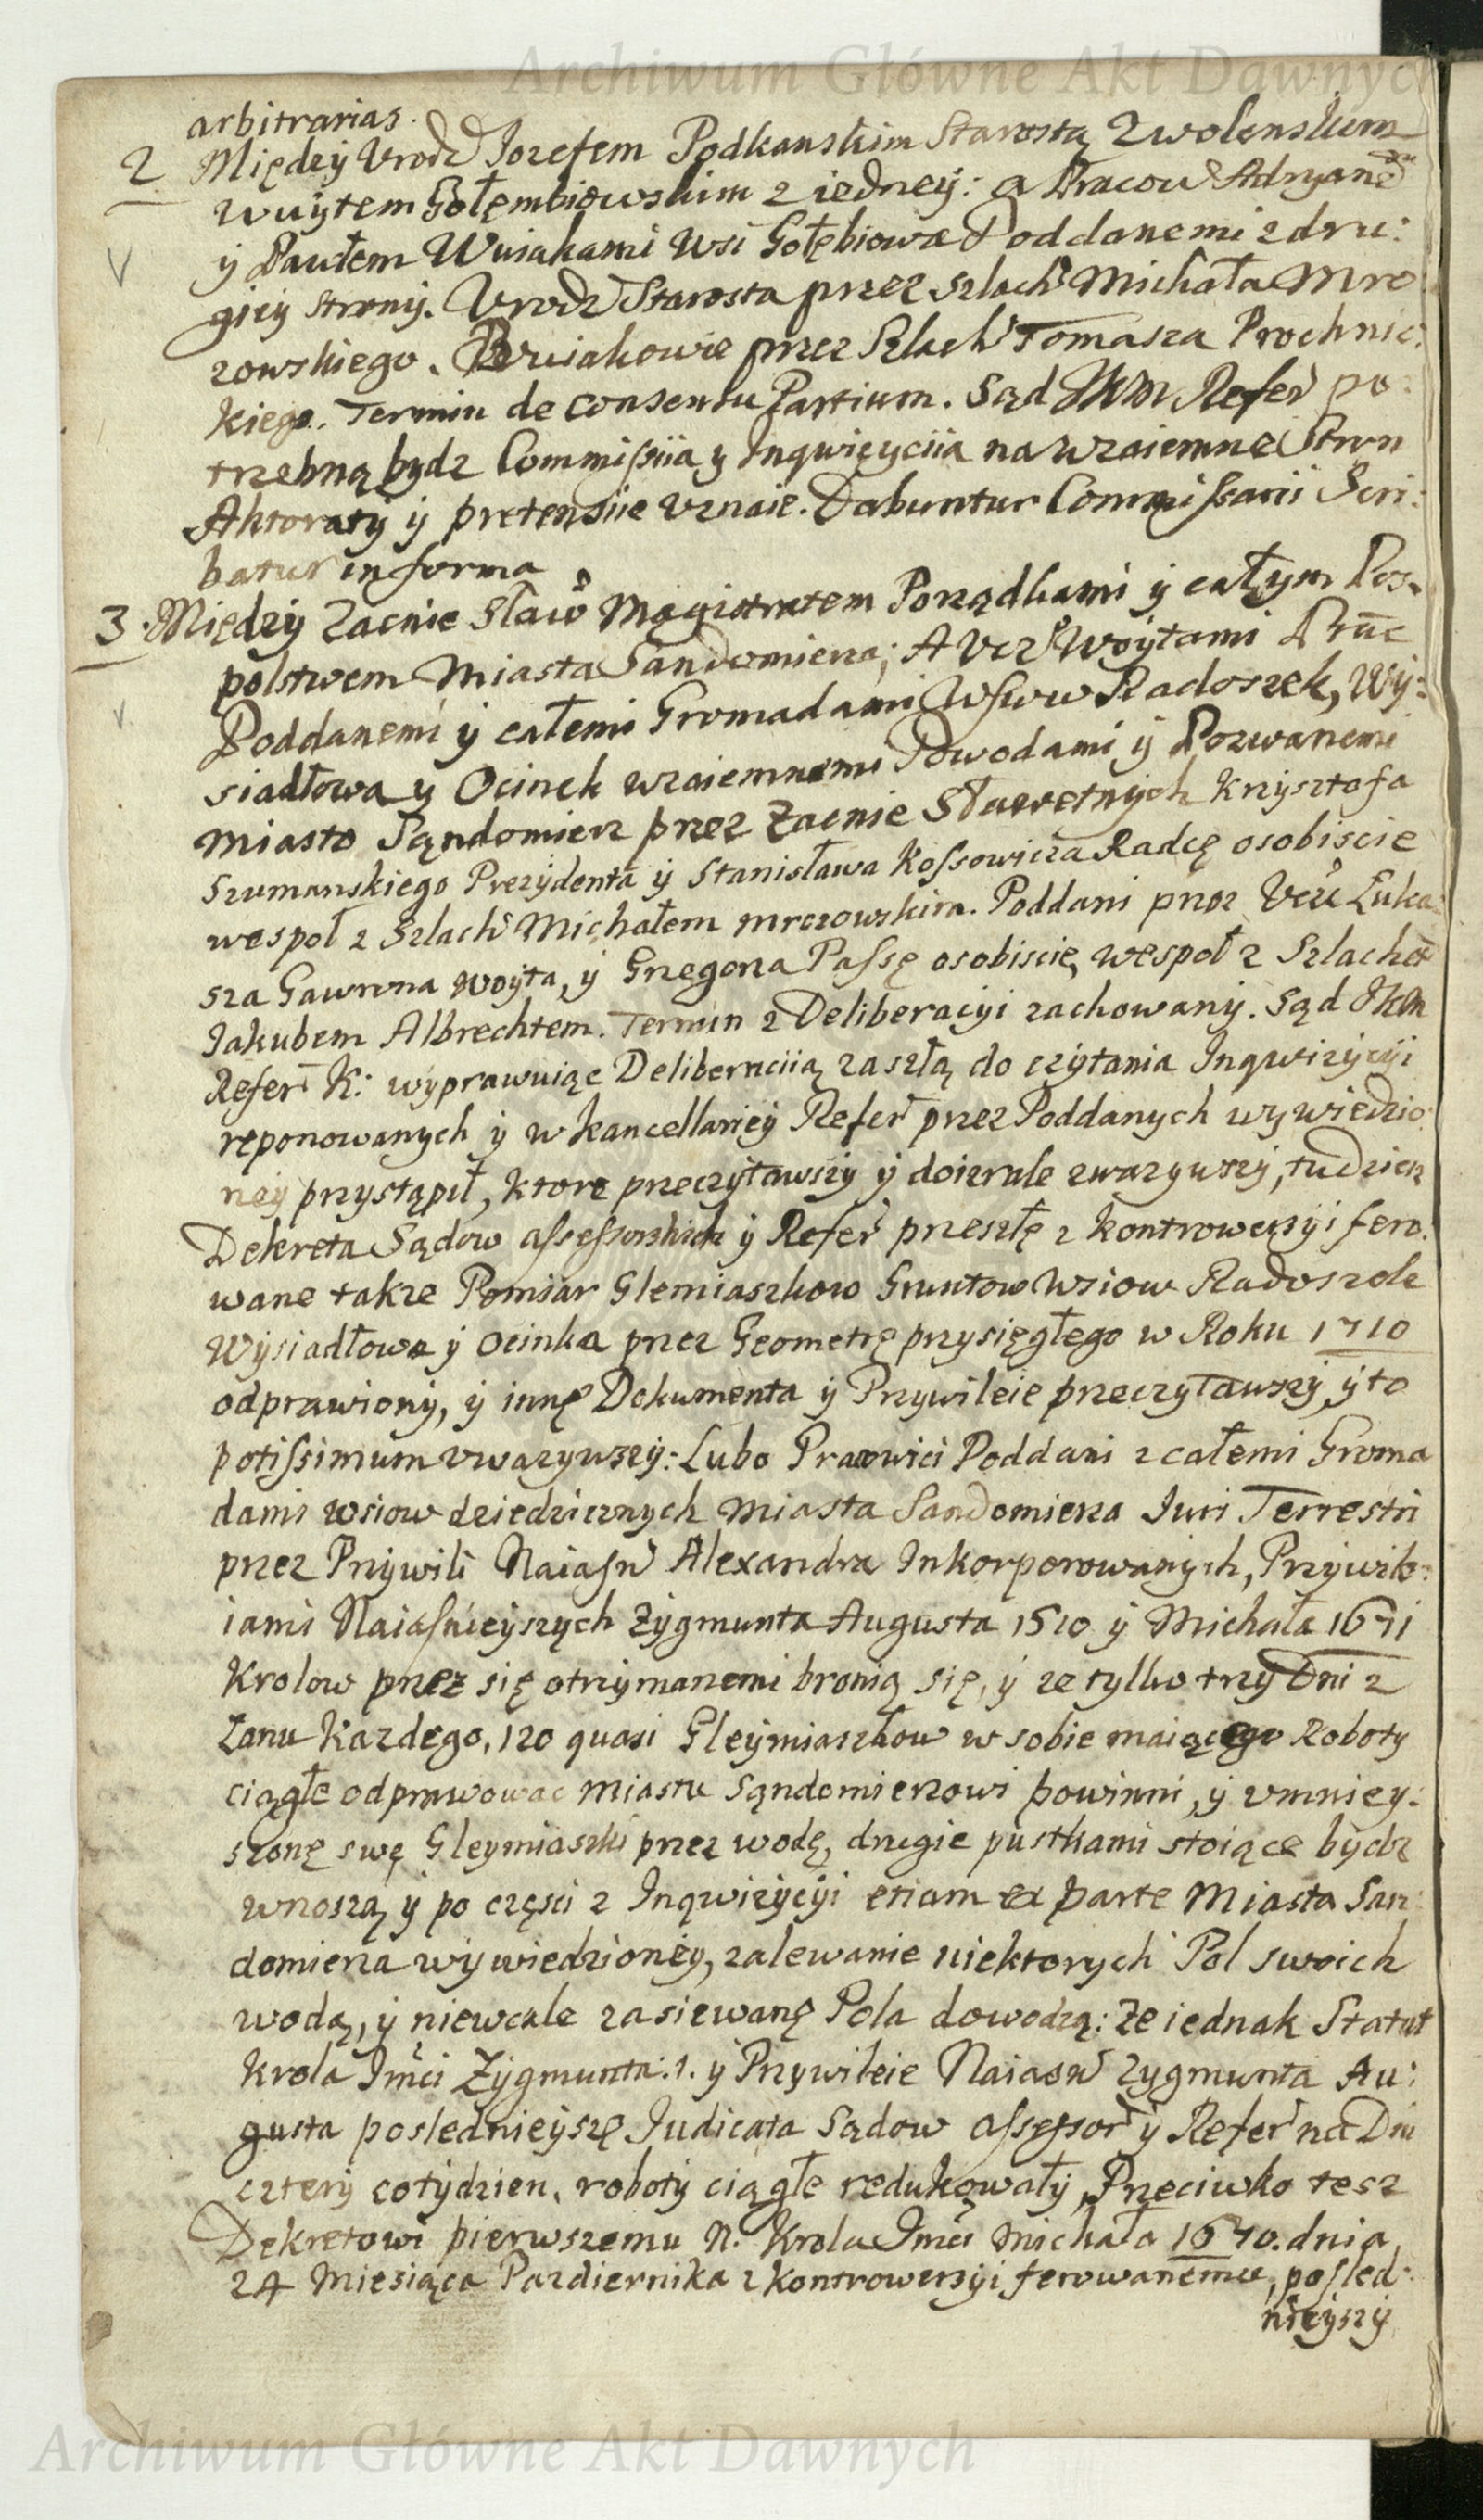 Archiwum Główne Akt Dawnych
arbitrarias.
2 Między Vrodz Jozefem Podkanskim Starostą Zwolenskim
wuytem Gołembiowskim z iedney: a Pracow Adryanē
y Pawłem Wuiakami wsi Gołębiowa Poddanemi z dru:
giey strony. Vrodz Starosta przez szlach Michała Mro
zowskiego. Wuiakowie przez Szlach Tomasza Prochnic:
kiego. Termin de consensu Partium. Sąd JKM Refer po:
trzebną bydz Commissiia y Inqwizyciia na wzaiemne Stron
Aktoraty y pretensiie vznaie. Dabuntur Commissarii Scri:
batur in forma
3. Między Zacnie Sław Magistratem Porządkami y całym Pos-
polstwem Miasta Sandomierza; A Vcz Woytami Prac
Poddanemi y całemi Gromadami Wsiow Radoszek, Wy:
siadłowa y Ocinek wzaiemnemi Powodami y Pozwanemi
Miasto Sandomierz przez Zacnie Sławetnych Krzysztofa
Szumanskiego Prezydenta y Stanisława Kossowicza Radcę osobiscie
wespoł z Szlach Michałem Mrozowskim. Poddani przez Vcz Łuka:
sza Gawrona Woyta, y Grzegorza Passę osobiscie, wespoł z Szlachet
Jakubem Albrechtem. Termin z Deliberacyi zachowany. Sąd JKM
Refer K: wyprawuiąc Deliberaciią zaszłą do czytania Inqwizycyi
reponowanych y w kancellariey Refer przez Poddanych wywiedzio:
ney przystąpił, ktore przeczytawszy y doizrale zwazywszy, tudziesz
Dekreta Sądow assessorskich y Refer przeszłe z kontrowersyi fero:
wane takze Pomiar Glemiaszkow Gruntow Wsiow Radoszek
Wysiadłowa y Ocinka przez Geometrę przysięgłego w Roku 1710
odprawiony, y inne Dokumenta y Przywileie przeczytawszy, y to
potissimum vwazywszy: Lubo Pracowici Poddani z całemi Groma
dami wsiow dziedzicznych Miasta Sandomierza Juri Terrestri
przez Przywili Naiasn Alexandra Inkorporowanych, Przywile:
iami Naiasnieyszych Zygmunta Augusta 1510 y Michała 1671
Krolow przez się otrzymanemi bronią się, y ze tylko trzy Dni z
Łanu kazdego, 120 quasi Gleymiaszkow w sobie maiącego Roboty
ciągłe odprawowac Miastu Sandomierzowi powinni, y vmniey:
szone swe Gleymiaszki przez wodę, drugie pustkami stoiące bydz
wnoszą, y po częsci z Inqwizycyi etiam ex parte Miasta San:
domierza wywiedzioney, zalewanie niektorych Pol swoich
wodą, y niewcale zasiewane Pola dowodzą: Ze iednak Statut
Krola Jmci Zygmunta. 1. y Przywileie Naiasn Zygmunta Au:
gusta poslednieysze Judicata Sądow assessor y Refer na Dni
cztery cotydzien, roboty ciągłe redukowały, Przeciwko tesz
Dekretowi pierwszemu N. Krola Jmci Michała 1670. dnia
24 Miesiąca Pazdiernika z kontrowersyi ferowanemu, posled:
nieyszy
Archiwum Główne Akt Dawnych